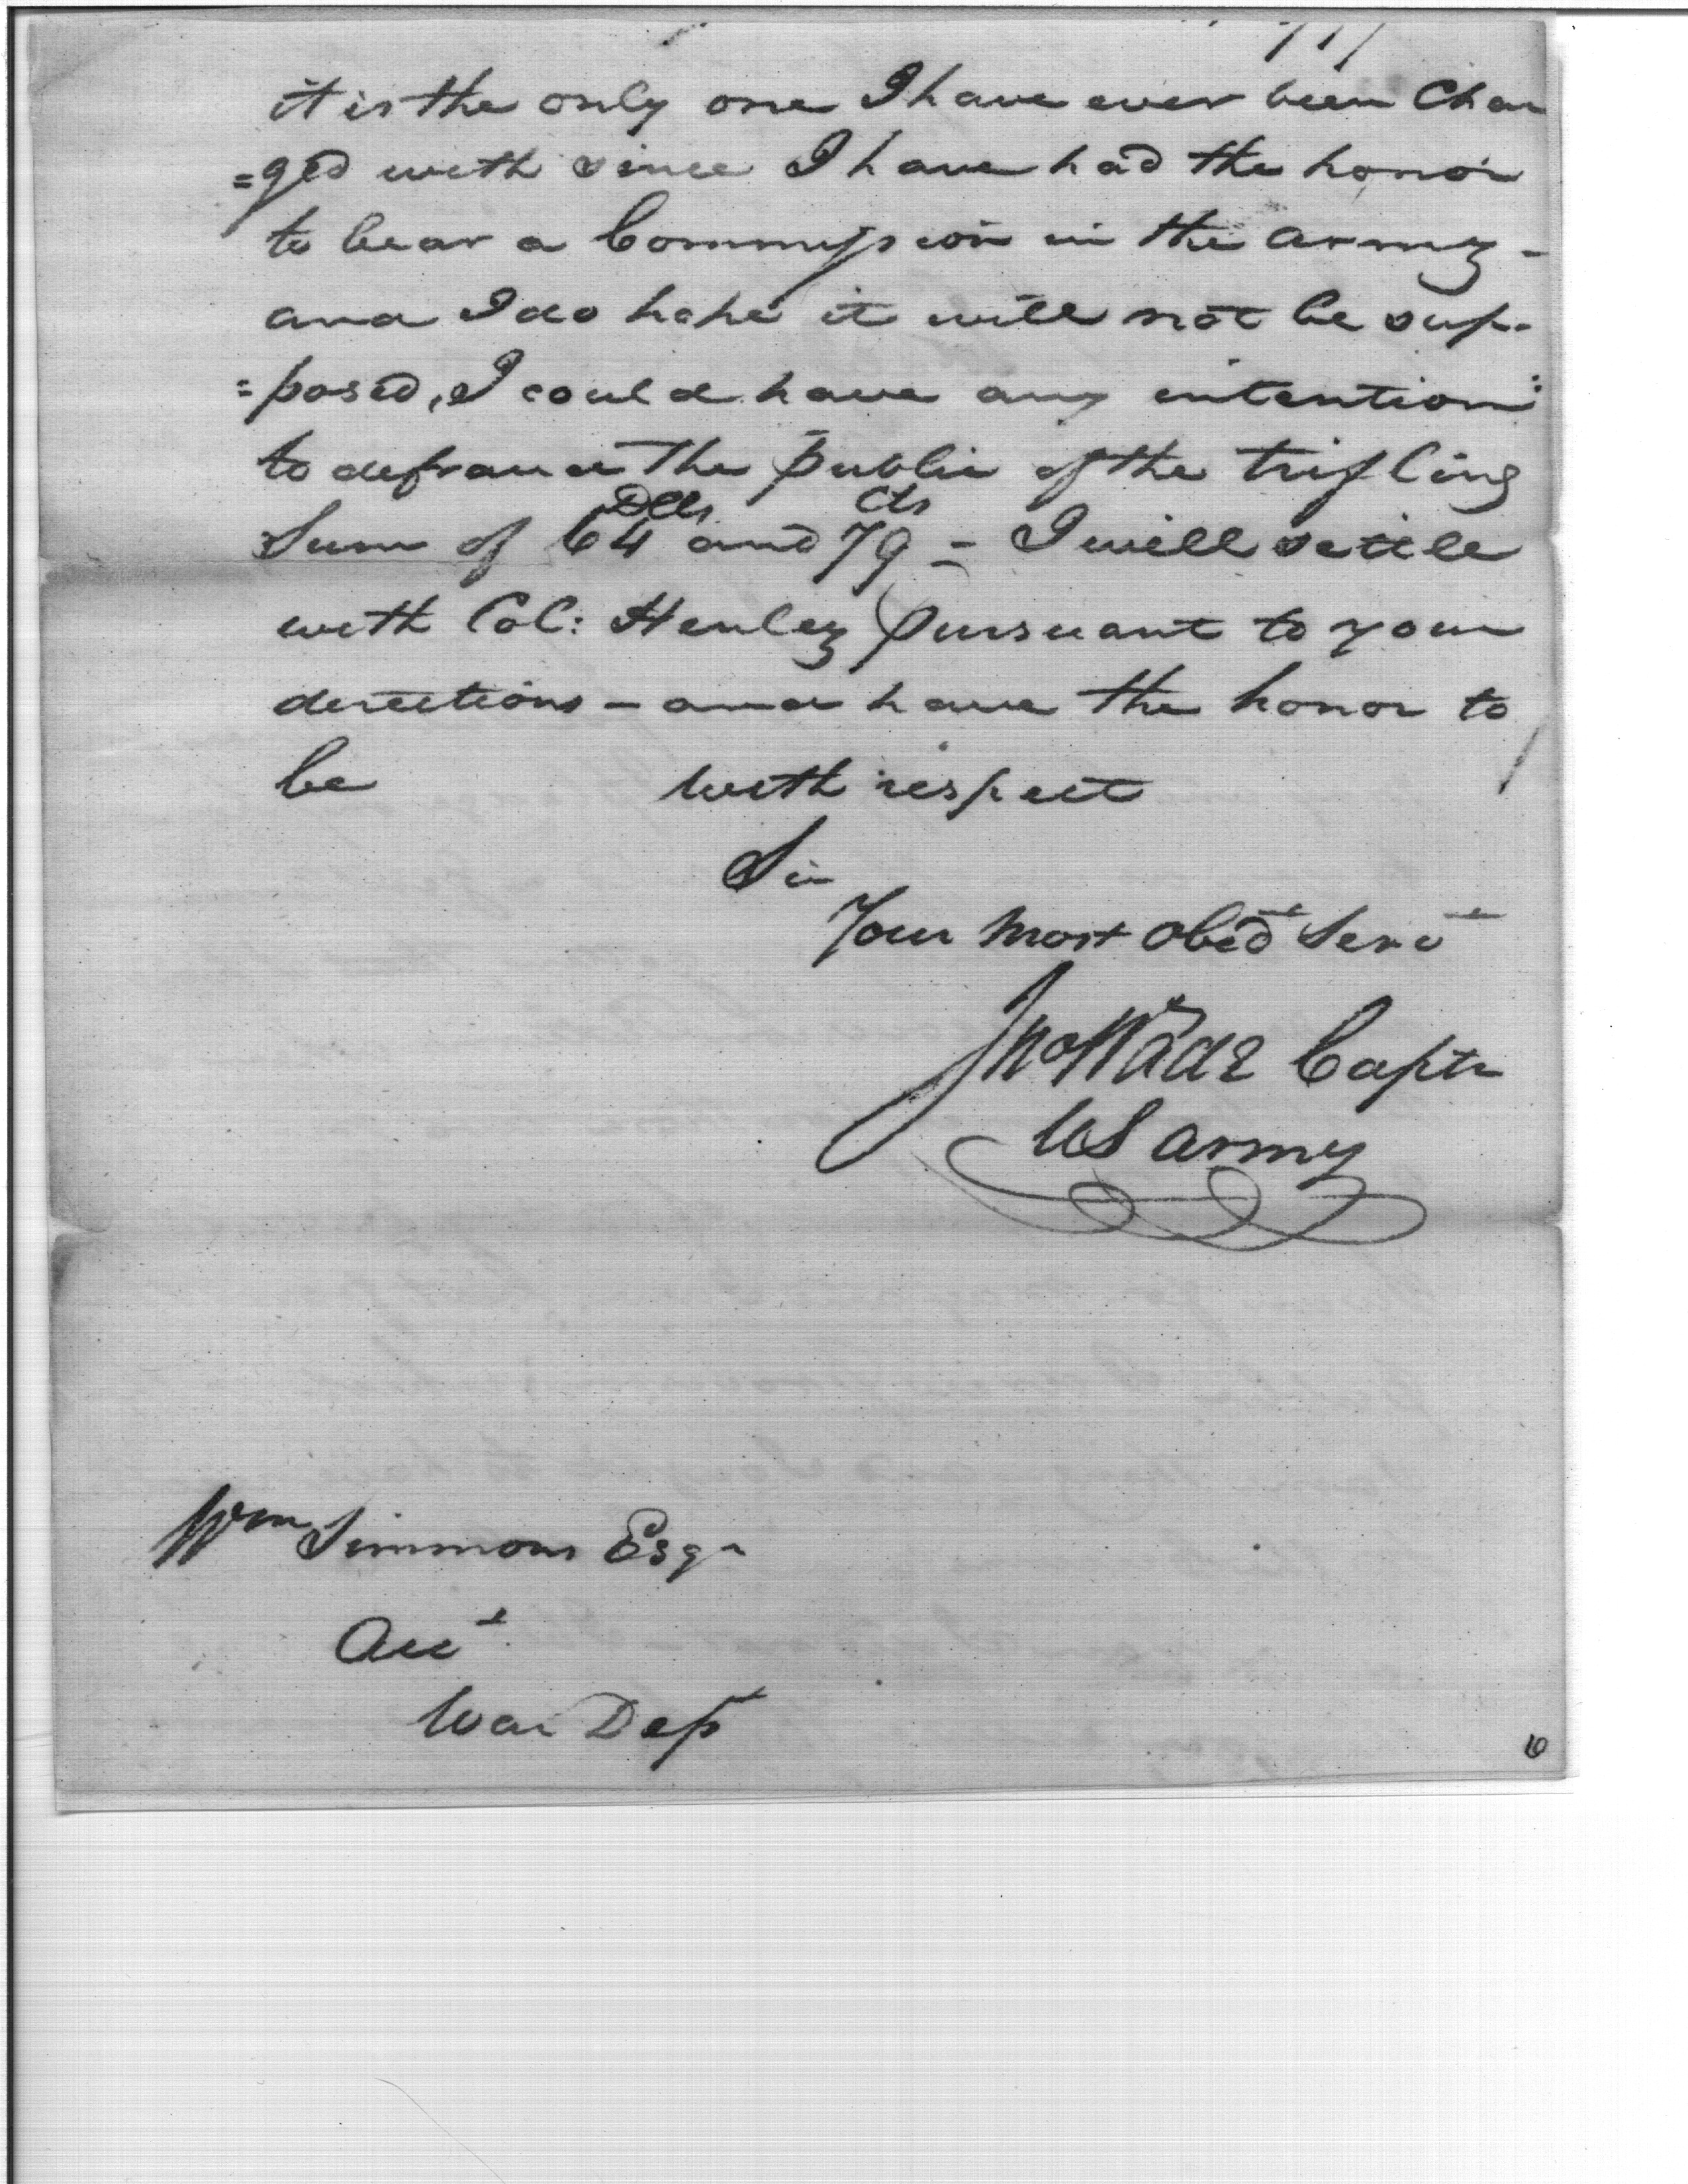 it is the only one I have ever been Char
=ged with since I have had the honor
to bear a Commission in the army -
and I do hope it will not be sup-
=posed, I could have any intention
to defraud The public of the trifling
Sum of 64 Dlls and 79 Cts - I will settle
with Col: Henley pursuant to your
directions - and have the honor to
be with respect
Sir
Your most obedt Servt
Jno Wade Captn
US army
Wm Simmons Esqr
Acct
War Dept